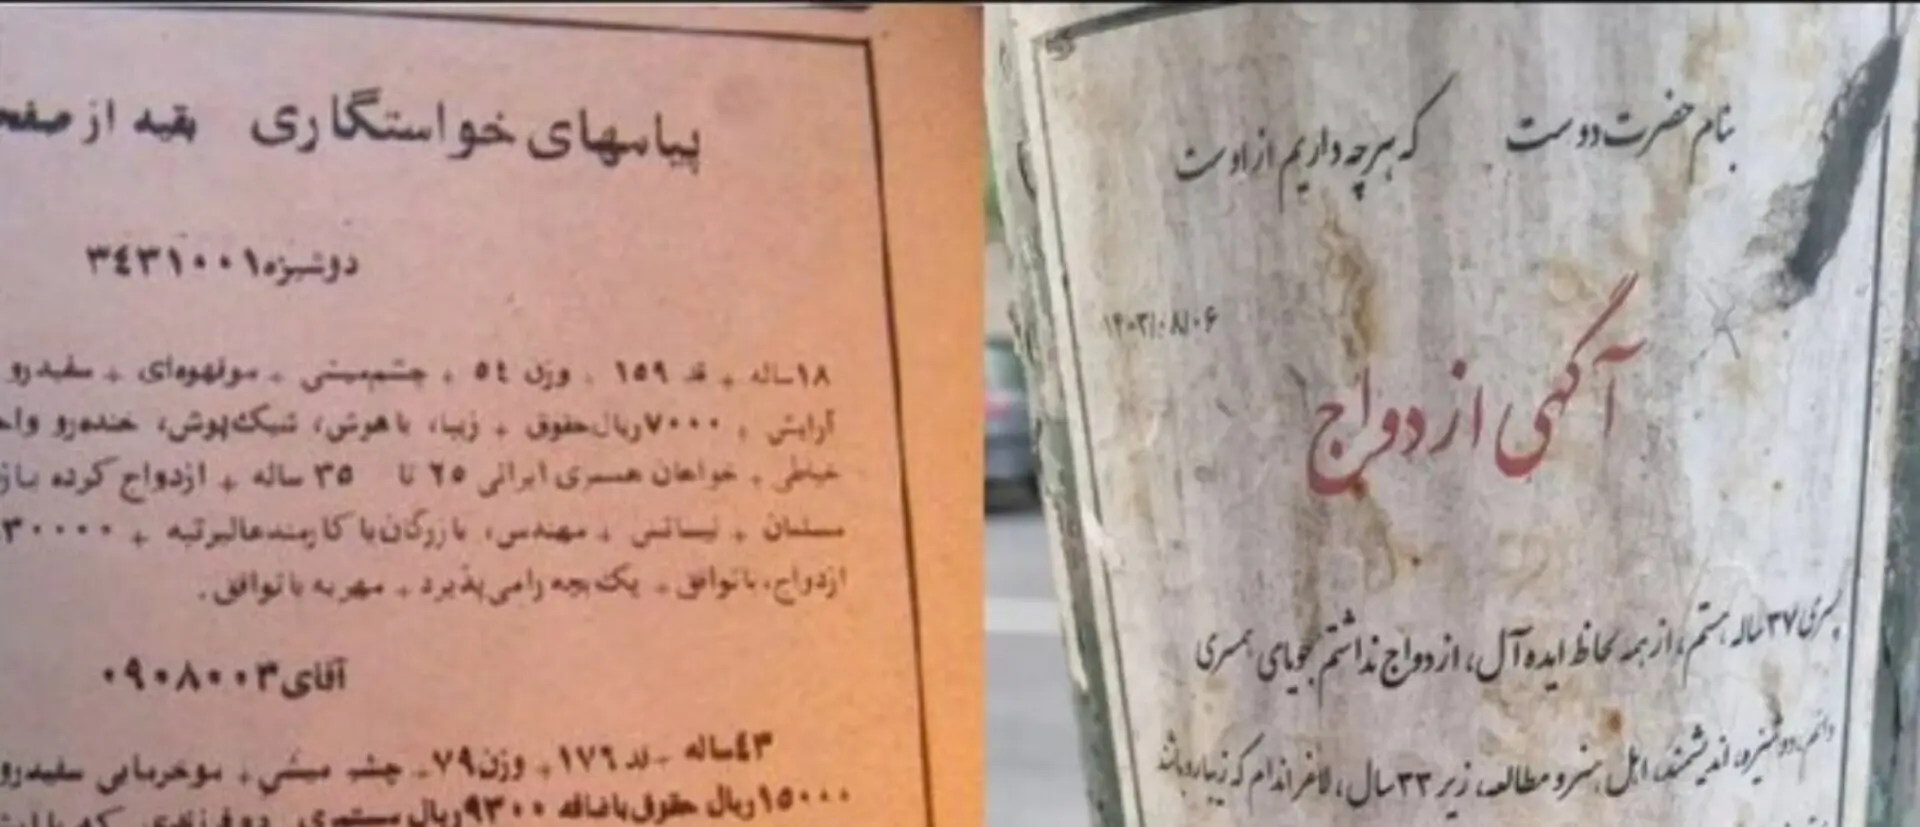 پیامهای خواستگاری بقیه از صفحه
دوشیزه ۳۴۳۱۰۰۱
۱۸ساله + قد ۱۵۹ + وزن ۵۴ + چشم‌میشی + موقهوه‌ای + سفیدرو
آرایش + ۷۰۰۰ریال‌حقوق + زیبا، باهوش، شیک‌پوش، خنده‌رو
خیاطی + خواهان همسری ایرانی ۲۵ تا ۳۵ ساله + ازدواج کرده
مسلمان + لیسانس + مهندس، بازرگان‌یا کارمندعالیرتبه + ۳۰۰۰۰
ازدواج، با توافق + یک‌بچه رامی‌پذیرد + مهریه با توافق.
آقای ۰۹۰۸۰۰۳
۴۳ساله - قد ۱۷۶ + وزن ۷۹- چشم میشی + موخرمایی سفیدرو
۱۵۰۰۰ریال حقوق‌باضافه ۹۳۰۰ریال‌مستمری
بنام حضرت دوست که هرچه داریم از اوست
۱۴۰۳/۰۸/۰۶
آگهی ازدواج
پسری ۳۷ ساله هستم، از همه لحاظ ایده آل، ازدواج نداشتم جویای همسری
دائم، دوشیزه، اندیشمند، اهل هنر و مطالعه، زیر ۳۳ سال، لاغر اندام که زیبارو باشد